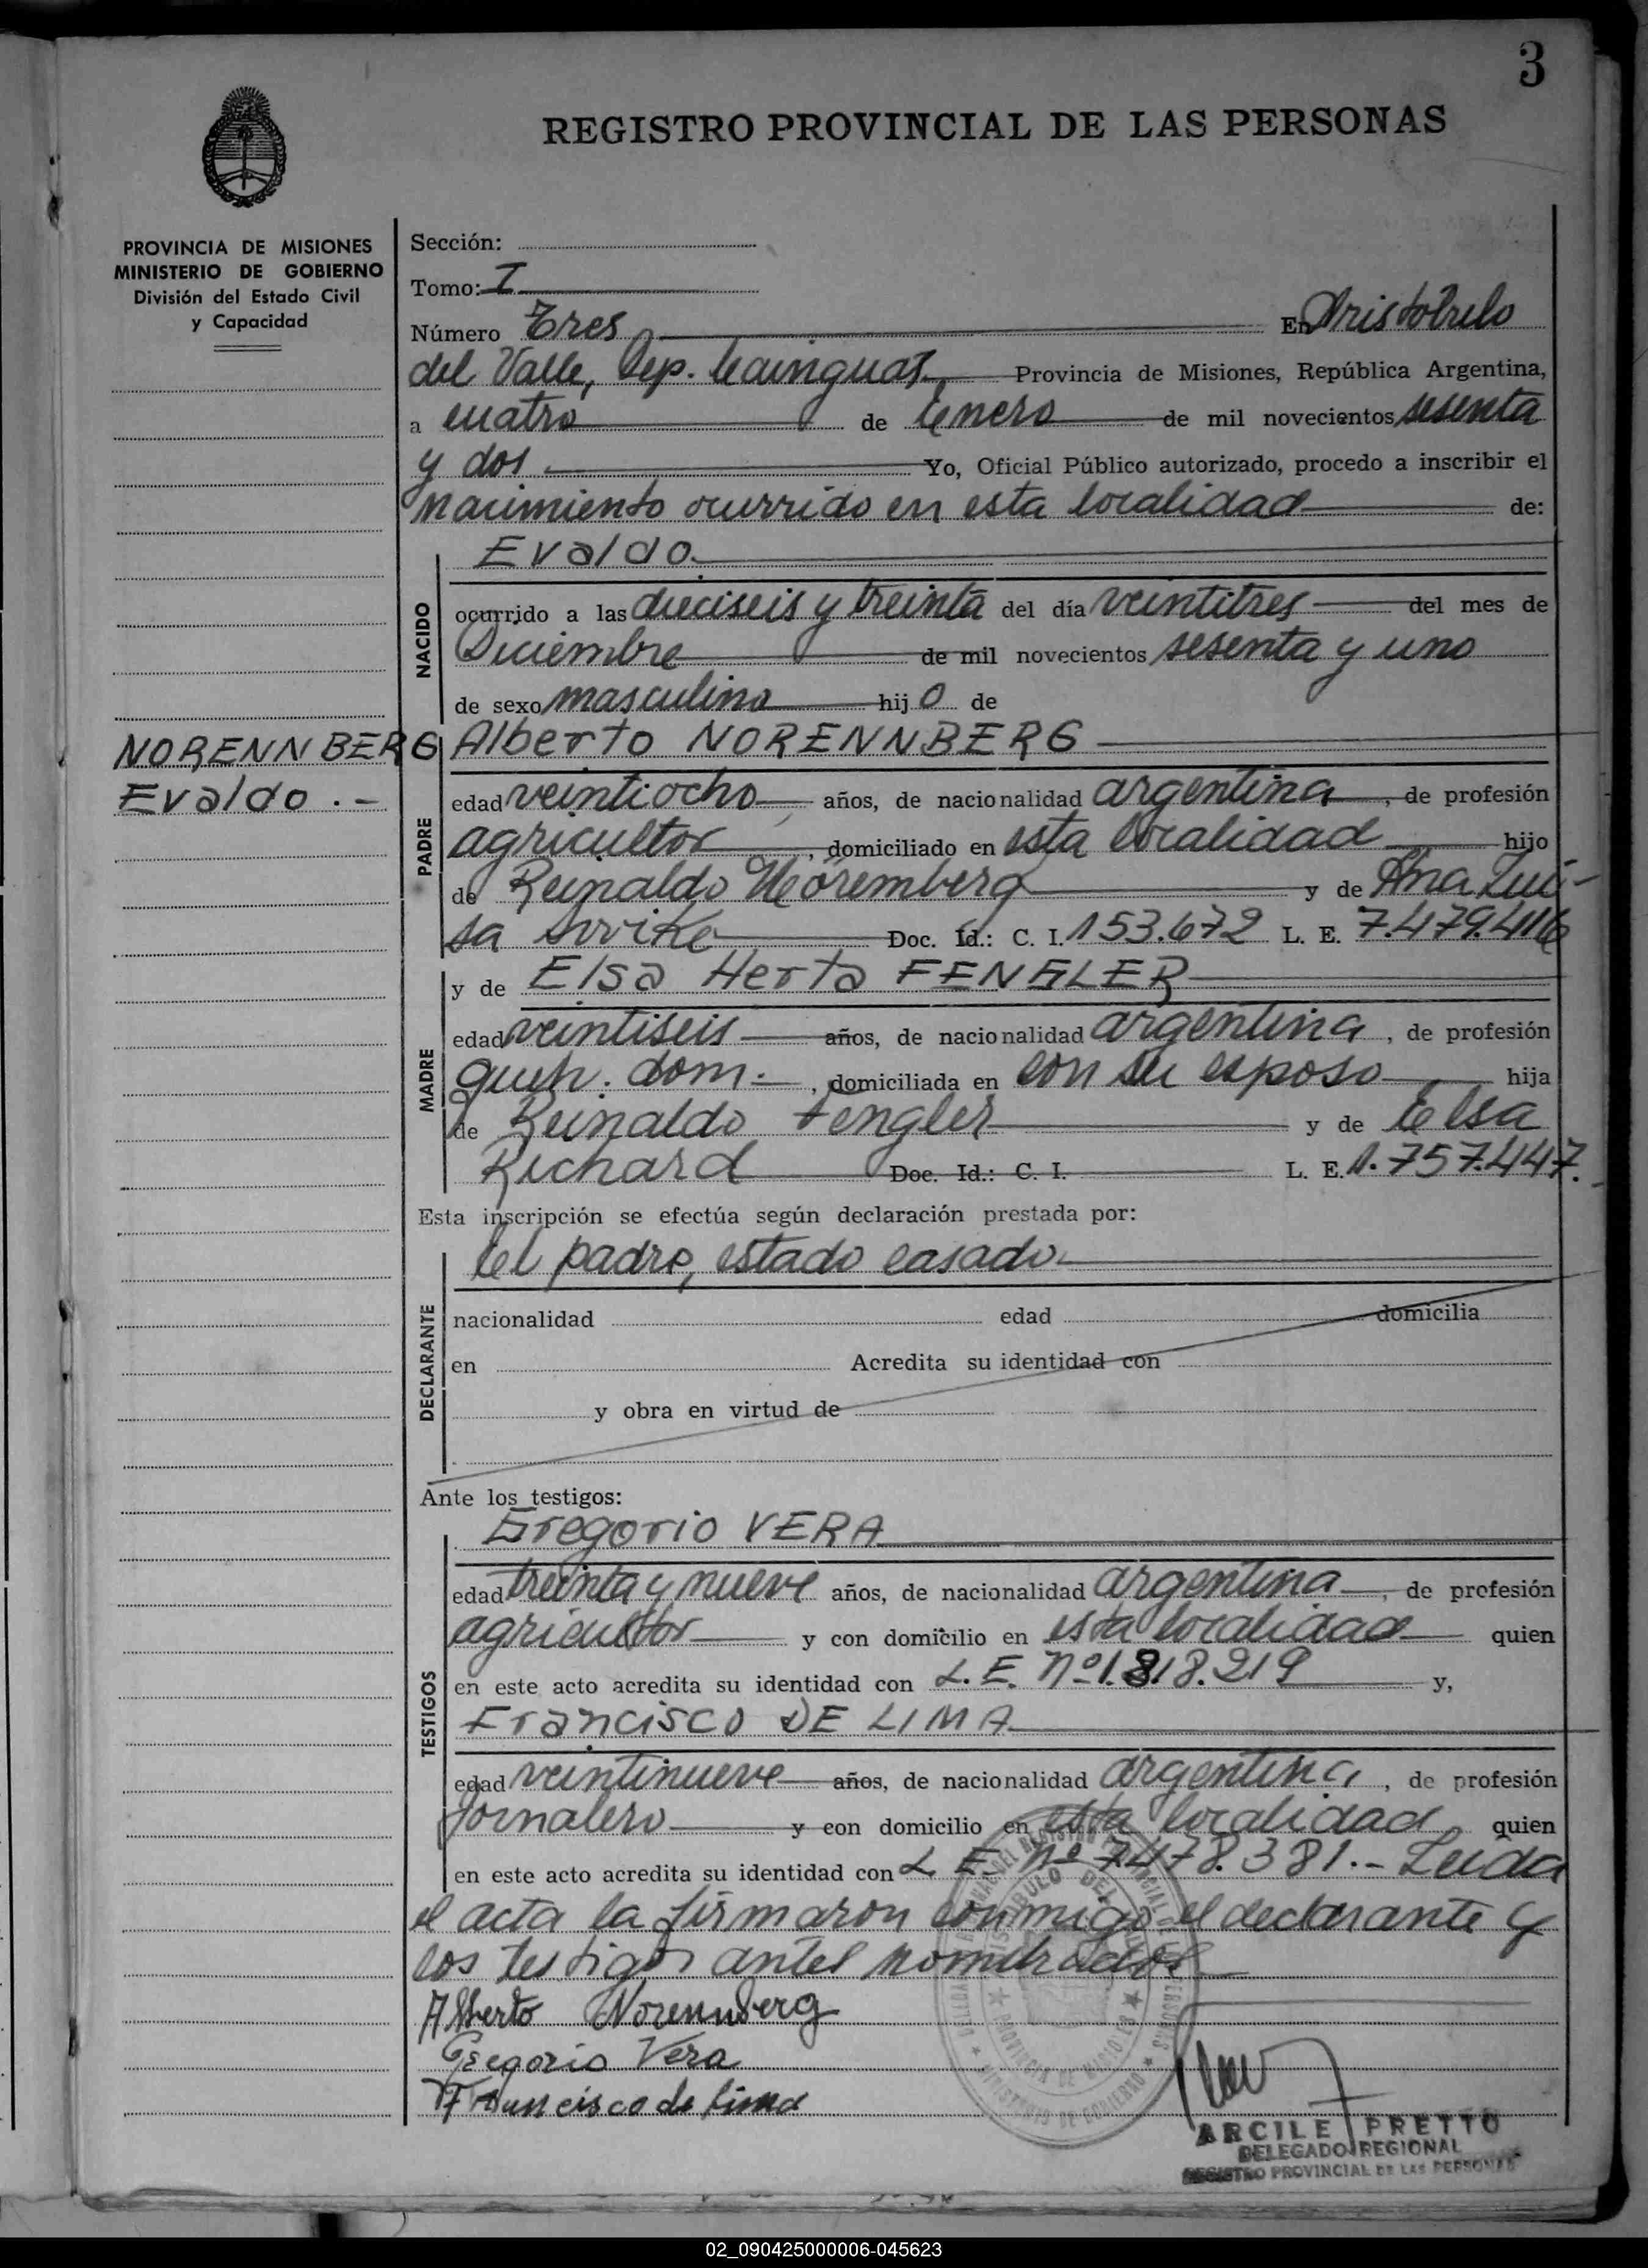 3
REGISTRO PROVINCIAL DE LAS PERSONAS
PROVINCIA DE MISIONES
MINISTERIO DE GOBIERNO
División del Estado Civil
y Capacidad
Sección:
Tomo: I
Número Tres En Aristóbulo
del Valle, Dep. Cainguas, Provincia de Misiones, República Argentina,
a cuatro de Enero de mil novecientos sesenta
y dos Yo, Oficial Público autorizado, procedo a inscribir el
nacimiento ocurrido en esta localidad de:
Evaldo
NACIDO
ocurrido a las dieciseis y treinta del día veintitres del mes de
Diciembre de mil novecientos sesenta y uno
de sexo masculino hijo de
NORENNBERG
Evaldo.-
Alberto NORENNBERG
PADRE
edad veintiocho años, de nacionalidad argentina, de profesión
agricultor, domiciliado en esta localidad hijo
de Reinaldo Noremberg y de Ana Lui-
sa Doc. Id.: C. I. 153.672 L. E. 7.479.416
y de Elsa Herta FENGLER
MADRE
edad veintiseis años, de nacionalidad argentina, de profesión
queh. dom.-, domiciliada en con su esposo hija
de Reinaldo Fengler y de Elsa
Richard Doc. Id.: C. I. L. E. 1.757.447.
Esta inscripción se efectúa según declaración prestada por:
El padre, estado casado
DECLARANTE
nacionalidad edad domicilia
en Acredita su identidad con
y obra en virtud de
Ante los testigos:
Gregorio VERA
TESTIGOS
edad treinta y nueve años, de nacionalidad argentina, de profesión
agricultor y con domicilio en esta localidad quien
en este acto acredita su identidad con L. E. Nº 1.818.219 y,
Francisco DE LIMA
edad veintinueve años, de nacionalidad argentina, de profesión
Jornalero y con domicilio en esta localidad quien
en este acto acredita su identidad con L. E. Nº 7.478.381.- Leida
el acta la firmaron conmigo el declarante y
los testigos antes nombrados
Alberto Norennberg
Gregorio Vera
Francisco de Lima
ARCILE PRETTO
DELEGADO REGIONAL
REGISTRO PROVINCIAL DE LAS PERSONAS
02_090425000006-045623